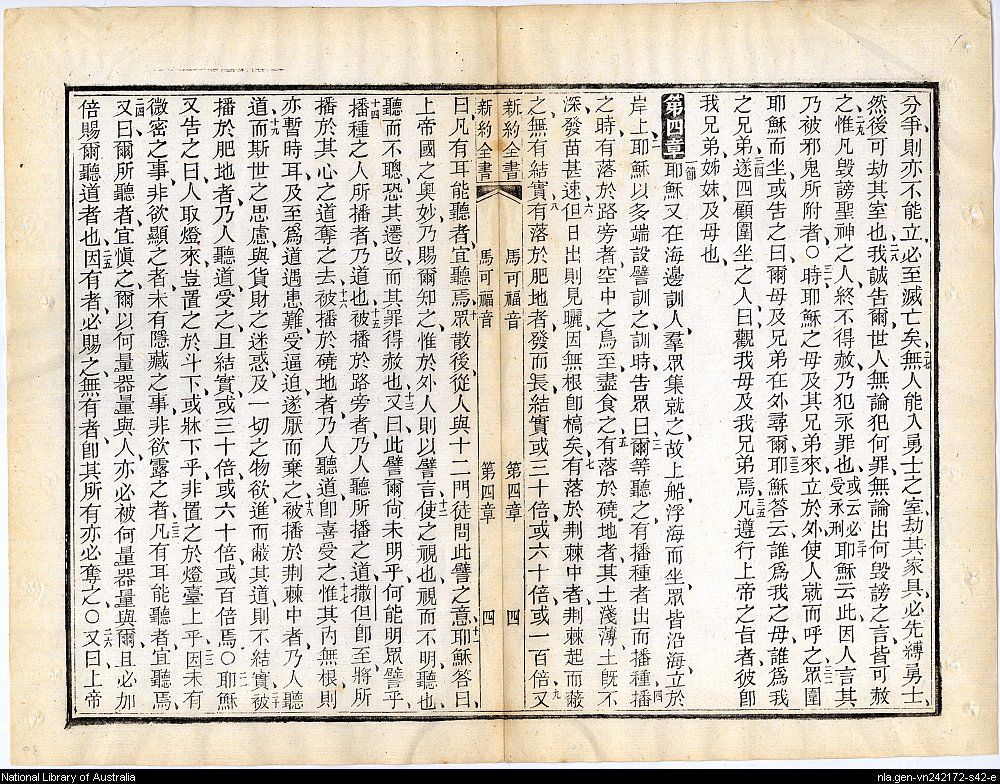 分爭則亦不能立必至滅亡矣二七無人能入勇士之室劫其家具必先縛勇士
然後可劫其室也二八我誠告爾世人無論犯何罪無論出何毀謗之言皆可赦
之二九惟凡毀謗聖神之人終不得赦乃犯永罪也或云必受永刑三十耶穌云此因人言其
乃被邪鬼所附者〇三一時耶穌之母及其兄弟來立於外使人就而呼之三二眾圍
耶穌而坐或告之曰爾母及兄弟在外尋爾三三耶穌答云誰為我之母誰為我
之兄弟三四遂四顧圍坐之人曰觀我母及我兄弟焉三五凡遵行上帝之旨者彼即
我兄弟姊妹及母也
第四章一節耶穌又在海邊訓人羣眾集就之故上船浮海而坐眾皆沿海立於
岸上二耶穌以多端設譬訓之訓時告眾曰三爾等聽之有播種者出而播種四播
之時有落於路旁者空中之鳥至盡食之五有落於磽地者其土淺薄土既不
深發苗甚速六但日出則見曬因無根即槁矣七有落於荆棘中者荆棘起而蔽
之無有結實八有落於肥地者發而長結實或三十倍或六十倍或一百倍九又
新約全書 馬可福音 第四章 四
新約全書 馬可福音 第四章 四
曰凡有耳能聽者宜聽焉十眾散後從人與十二門徒問此譬之意十一耶穌答曰
上帝國之奧妙乃賜爾知之惟於外人則以譬言十二使之視也視而不明聽也
聽而不聰恐其遷改而其罪得赦也十三又曰此譬爾尚未明乎何能明眾譬乎
十四播種之人所播者乃道也十五被播於路旁者乃人聽所播之道撒但即至將所
播於其心之道奪之去十六被播於磽地者乃人聽道即喜受之十七惟其內無根則
亦暫時耳及至為道遇患難受逼迫遂厭而棄之十八被播於荆棘中者乃人聽
道十九而斯世之思慮與貨財之迷惑及一切之物欲進而蔽其道則不結實二十被
播於肥地者乃人聽道受之且結實或三十倍或六十倍或百倍焉〇二一耶穌
又告之曰人取燈來豈置之於斗下或牀下乎非置之於燈臺上乎二二因未有
微密之事非欲顯之者未有隱藏之事非欲露之者二三凡有耳能聽者宜聽焉
二四又曰爾所聽者宜慎之爾以何量器量與人亦必被何量器量與爾且必加
倍賜爾聽道者也二五因有者必賜之無有者即其所有亦必奪之〇二六又曰上帝
National Library of Australia
nla.gen-vn242172-s42-e